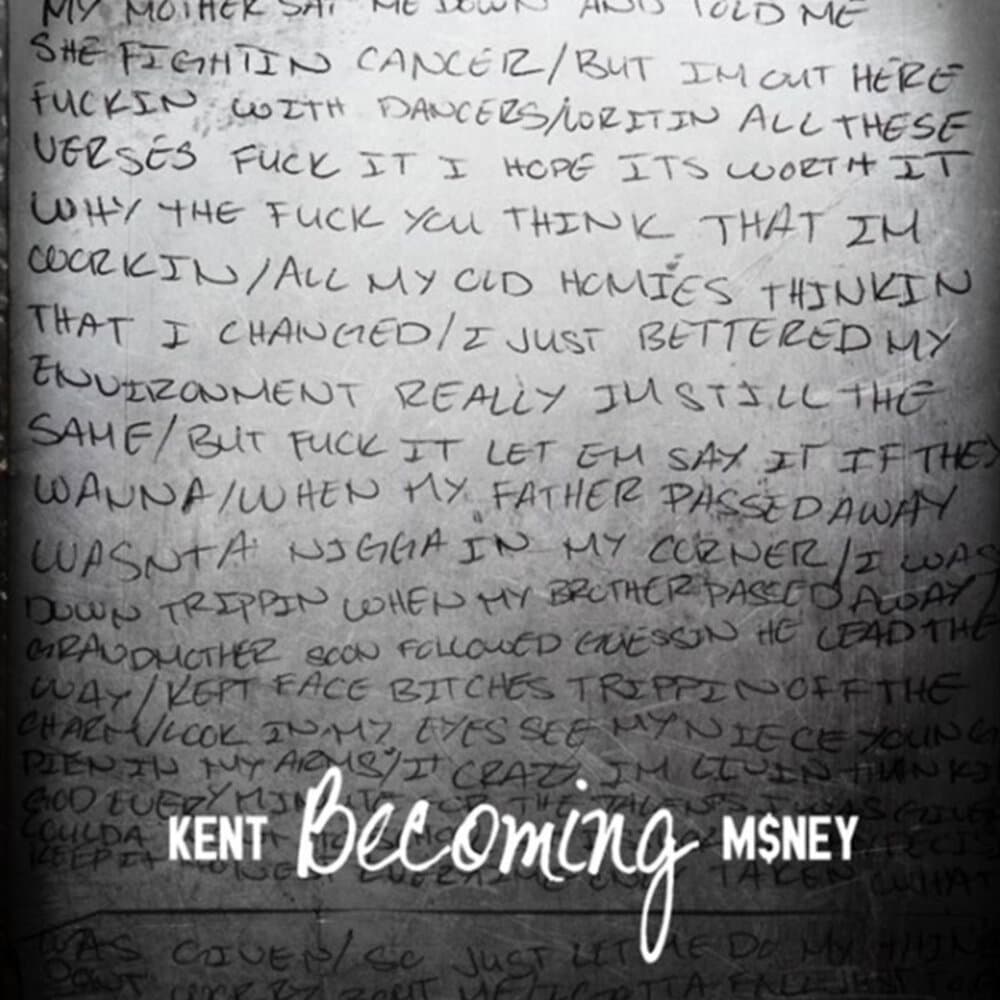 MY MOTHER SAT ME DOWN AND TOLD ME
SHE FIGHTIN CANCER/BUT IM OUT HERE
FUCKIN WITH DANCERS/WRITIN ALL THESE
VERSES FUCK IT I HOPE ITS WORTH IT
WHY THE FUCK YOU THINK THAT IM
WORKIN/ALL MY OLD HOMIES THINKIN
THAT I CHANGED/I JUST BETTERED MY
ENVIRONMENT REALLY IM STILL THE
SAME/BUT FUCK IT LET EM SAY IT IF THEY
WANNA/WHEN MY FATHER PASSED AWAY
WASNT A NIGGA IN MY CORNER/I WAS
DOWN TRIPPIN WHEN MY BROTHER PASSED AWAY/
GRANDMOTHER SOON FOLLOWED GUESSIN HE LEAD THE
WAY/KEPT FACE BITCHES TRIPPIN OFF THE
CHARM/LOOK IN MY EYES SEE MY NIECE YOUNG
DIEN IN MY ARMS/IT CRAZY IM LIVIN THANK
GOD EVERY MINUTE THE TALENTS I WAS GIVEN
COULDA
KEEP IT TAKEN WHAT
KENT Becoming M$NEY
WAS GIVEN/SO JUST LET ME DO MY THING
DONT ME/